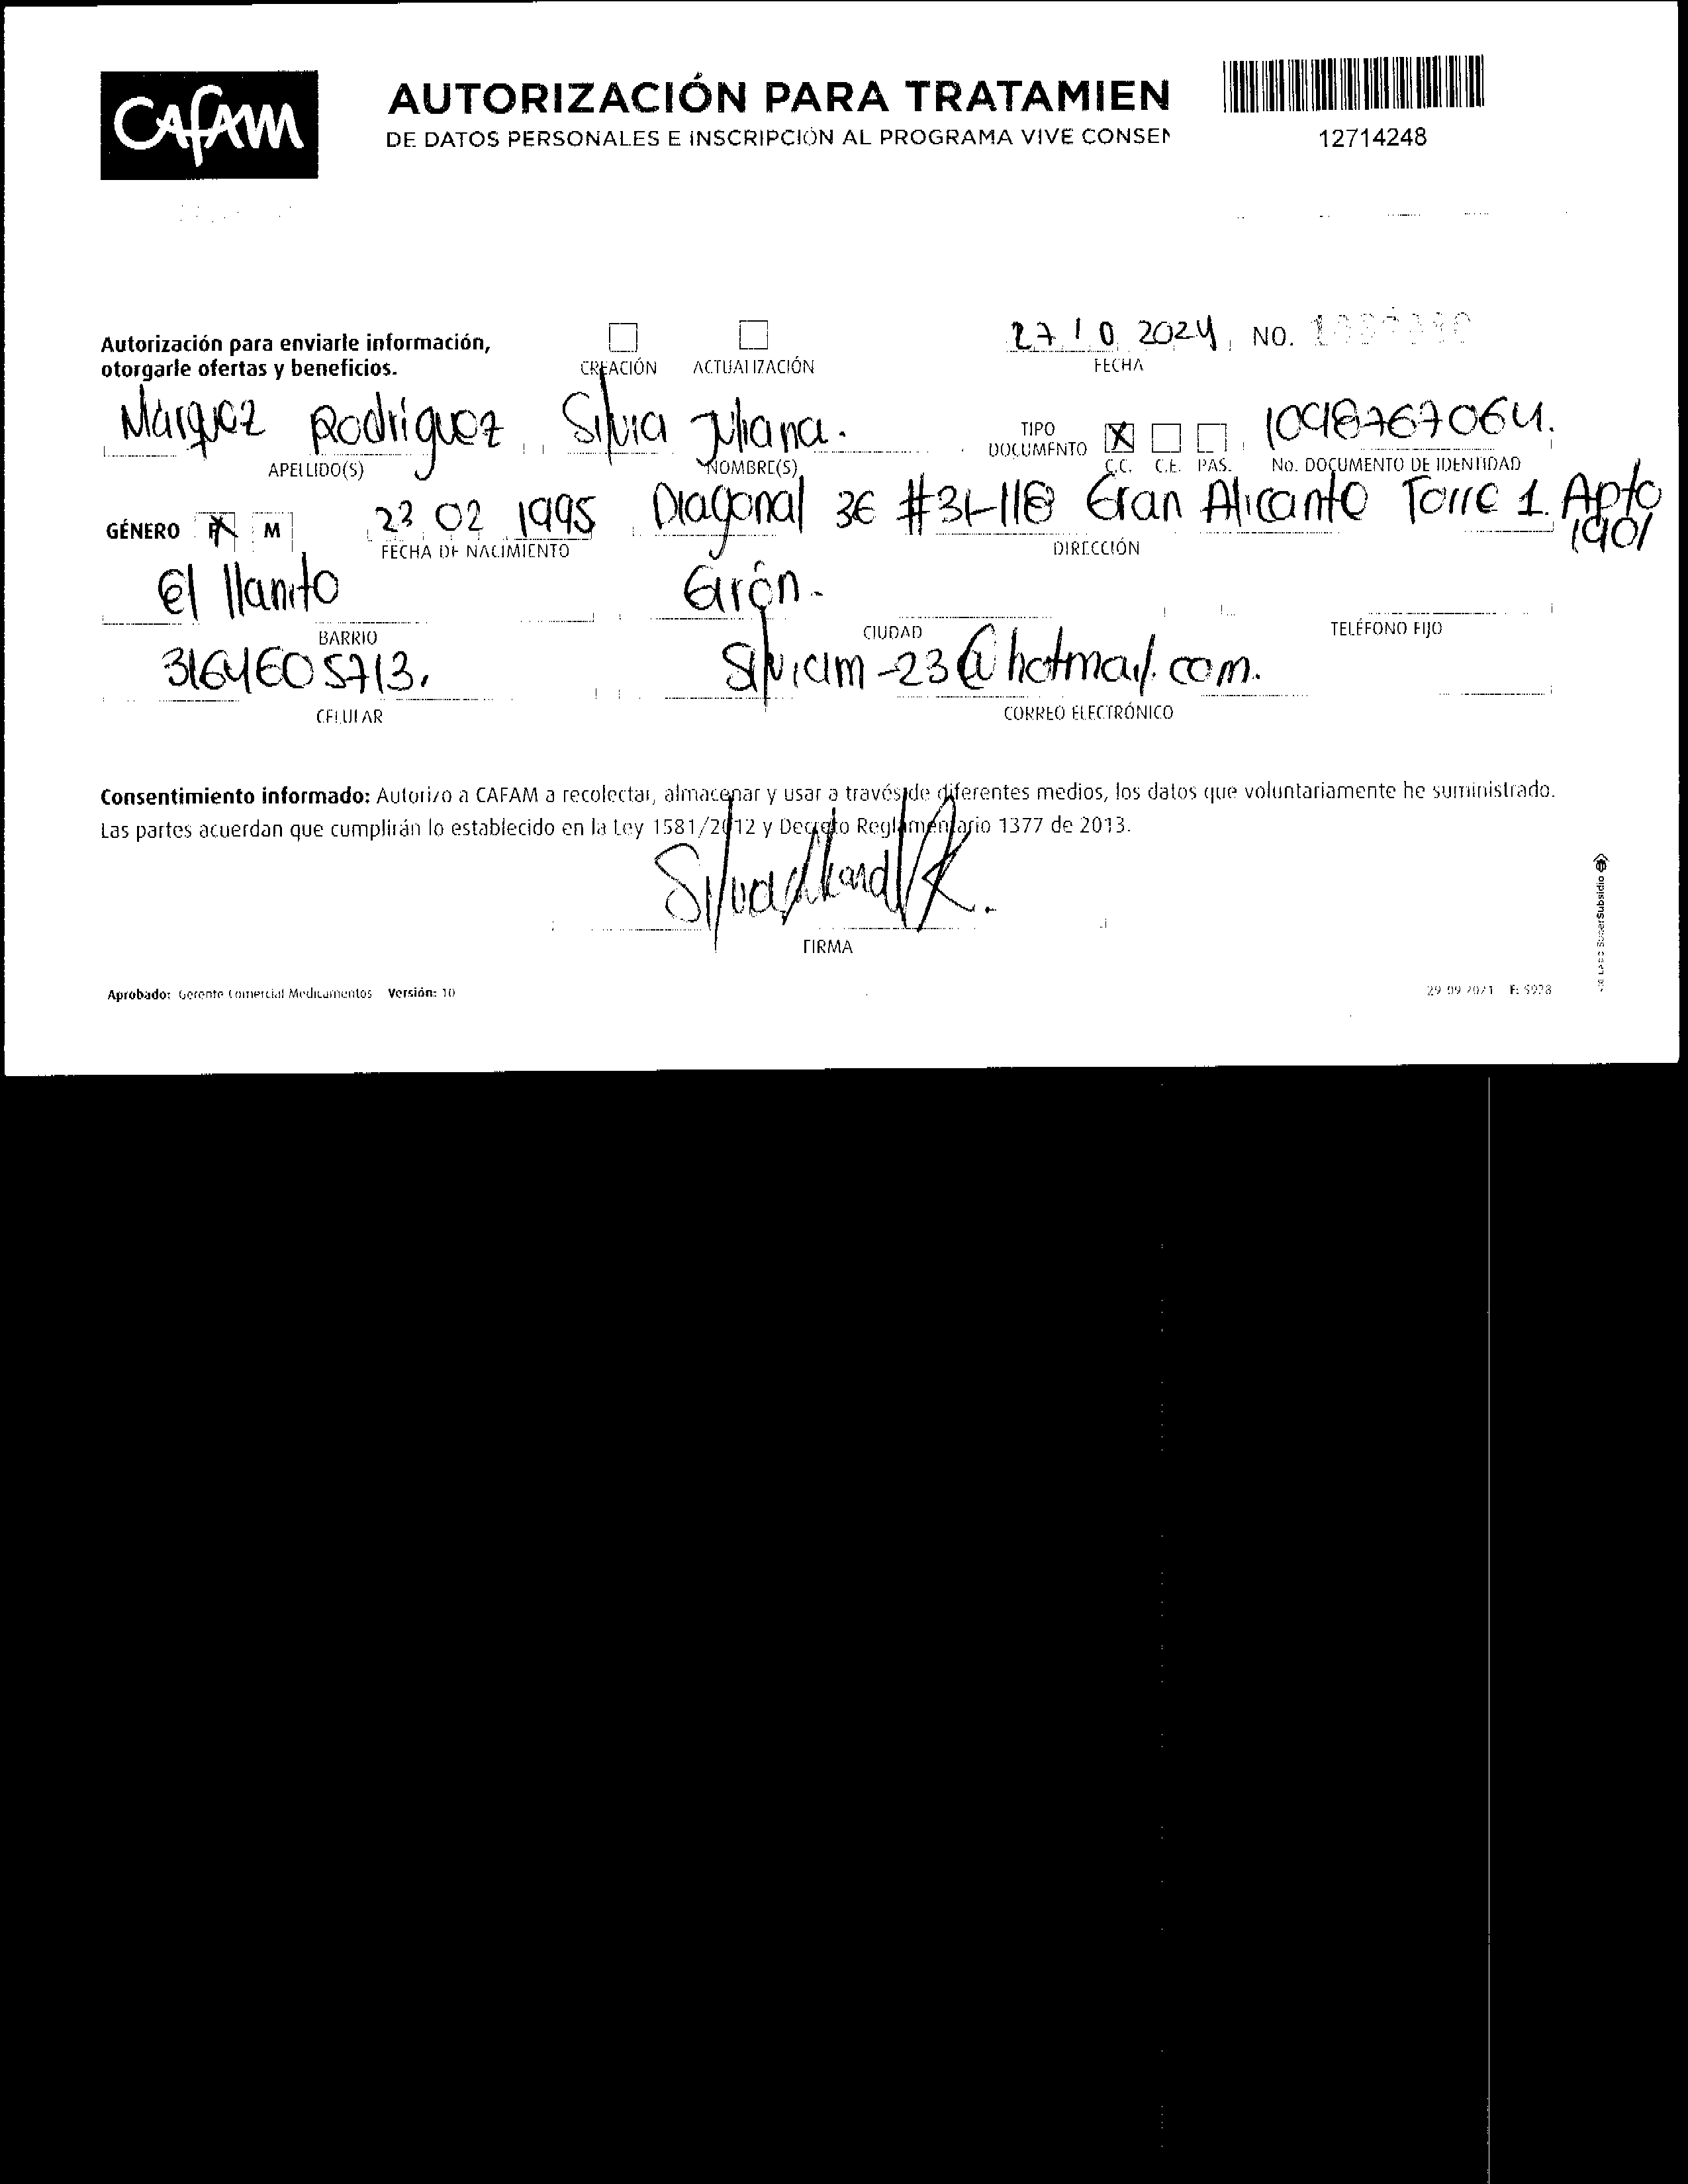 CAFAM
AUTORIZACIÓN PARA TRATAMIEN
DE DATOS PERSONALES E INSCRIPCIÓN AL PROGRAMA VIVE CONSEN
12714248
Autorización para enviarle información,
otorgarle ofertas y beneficios.
CREACIÓN ACTUALIZACIÓN
27 10 2024 NO.
FECHA
Márquez Rodríguez Silvia Juliana.
APELLIDO(S) NOMBRE(S)
TIPO DOCUMENTO X C.C. C.E. PAS.
1098767064.
No. DOCUMENTO DE IDENTIDAD
GÉNERO F X M
23 02 1995
FECHA DE NACIMIENTO
Diagonal 36 #31-118 Gran Alicante Torre 1. Apto 1901
DIRECCIÓN
El llanito Girón.
BARRIO CIUDAD TELÉFONO FIJO
3164605713. Silviam-23@hotmail.com.
CELULAR CORREO ELECTRÓNICO
Consentimiento informado: Autorizo a CAFAM a recolectar, almacenar y usar a través de diferentes medios, los datos que voluntariamente he suministrado.
Las partes acuerdan que cumplirán lo establecido en la Ley 1581/2012 y Decreto Reglamentario 1377 de 2013.
FIRMA
Aprobado: Gerente Comercial Medicamentos Versión: 10
29 09 2021 F: 5928
SuperSubsidio